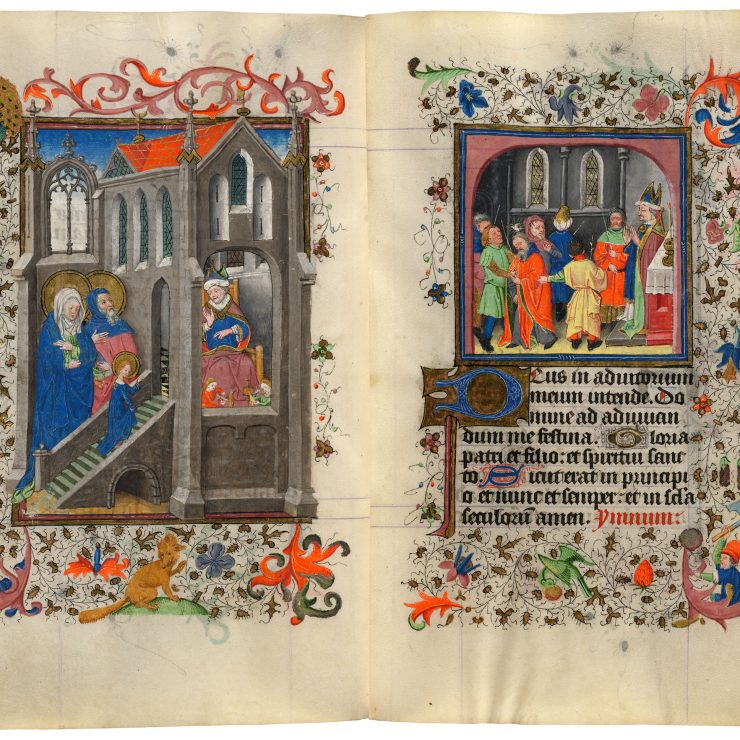 DEus in adiutorium
meum intende. Do
mine ad adiuuan
dum me festina. Gloria
patri et filio: et spiritui sanc
to. Sicut erat in principi
o et nunc et semper: et in scła
seculorum amen. Ymnum: